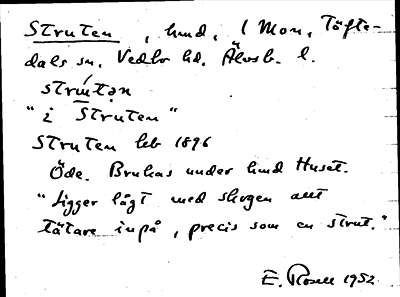 Struten, lund, l Mon, Töfte-
dals sn, Vedbo hd, Älvsb. l.
strú̄tən
"i Struten"
Struten hb 1896
Öde. Brukas under lund Huset.
"Ligger lågt med skogen allt
tätare inpå, precis som en strut."
E. Rosell 1952